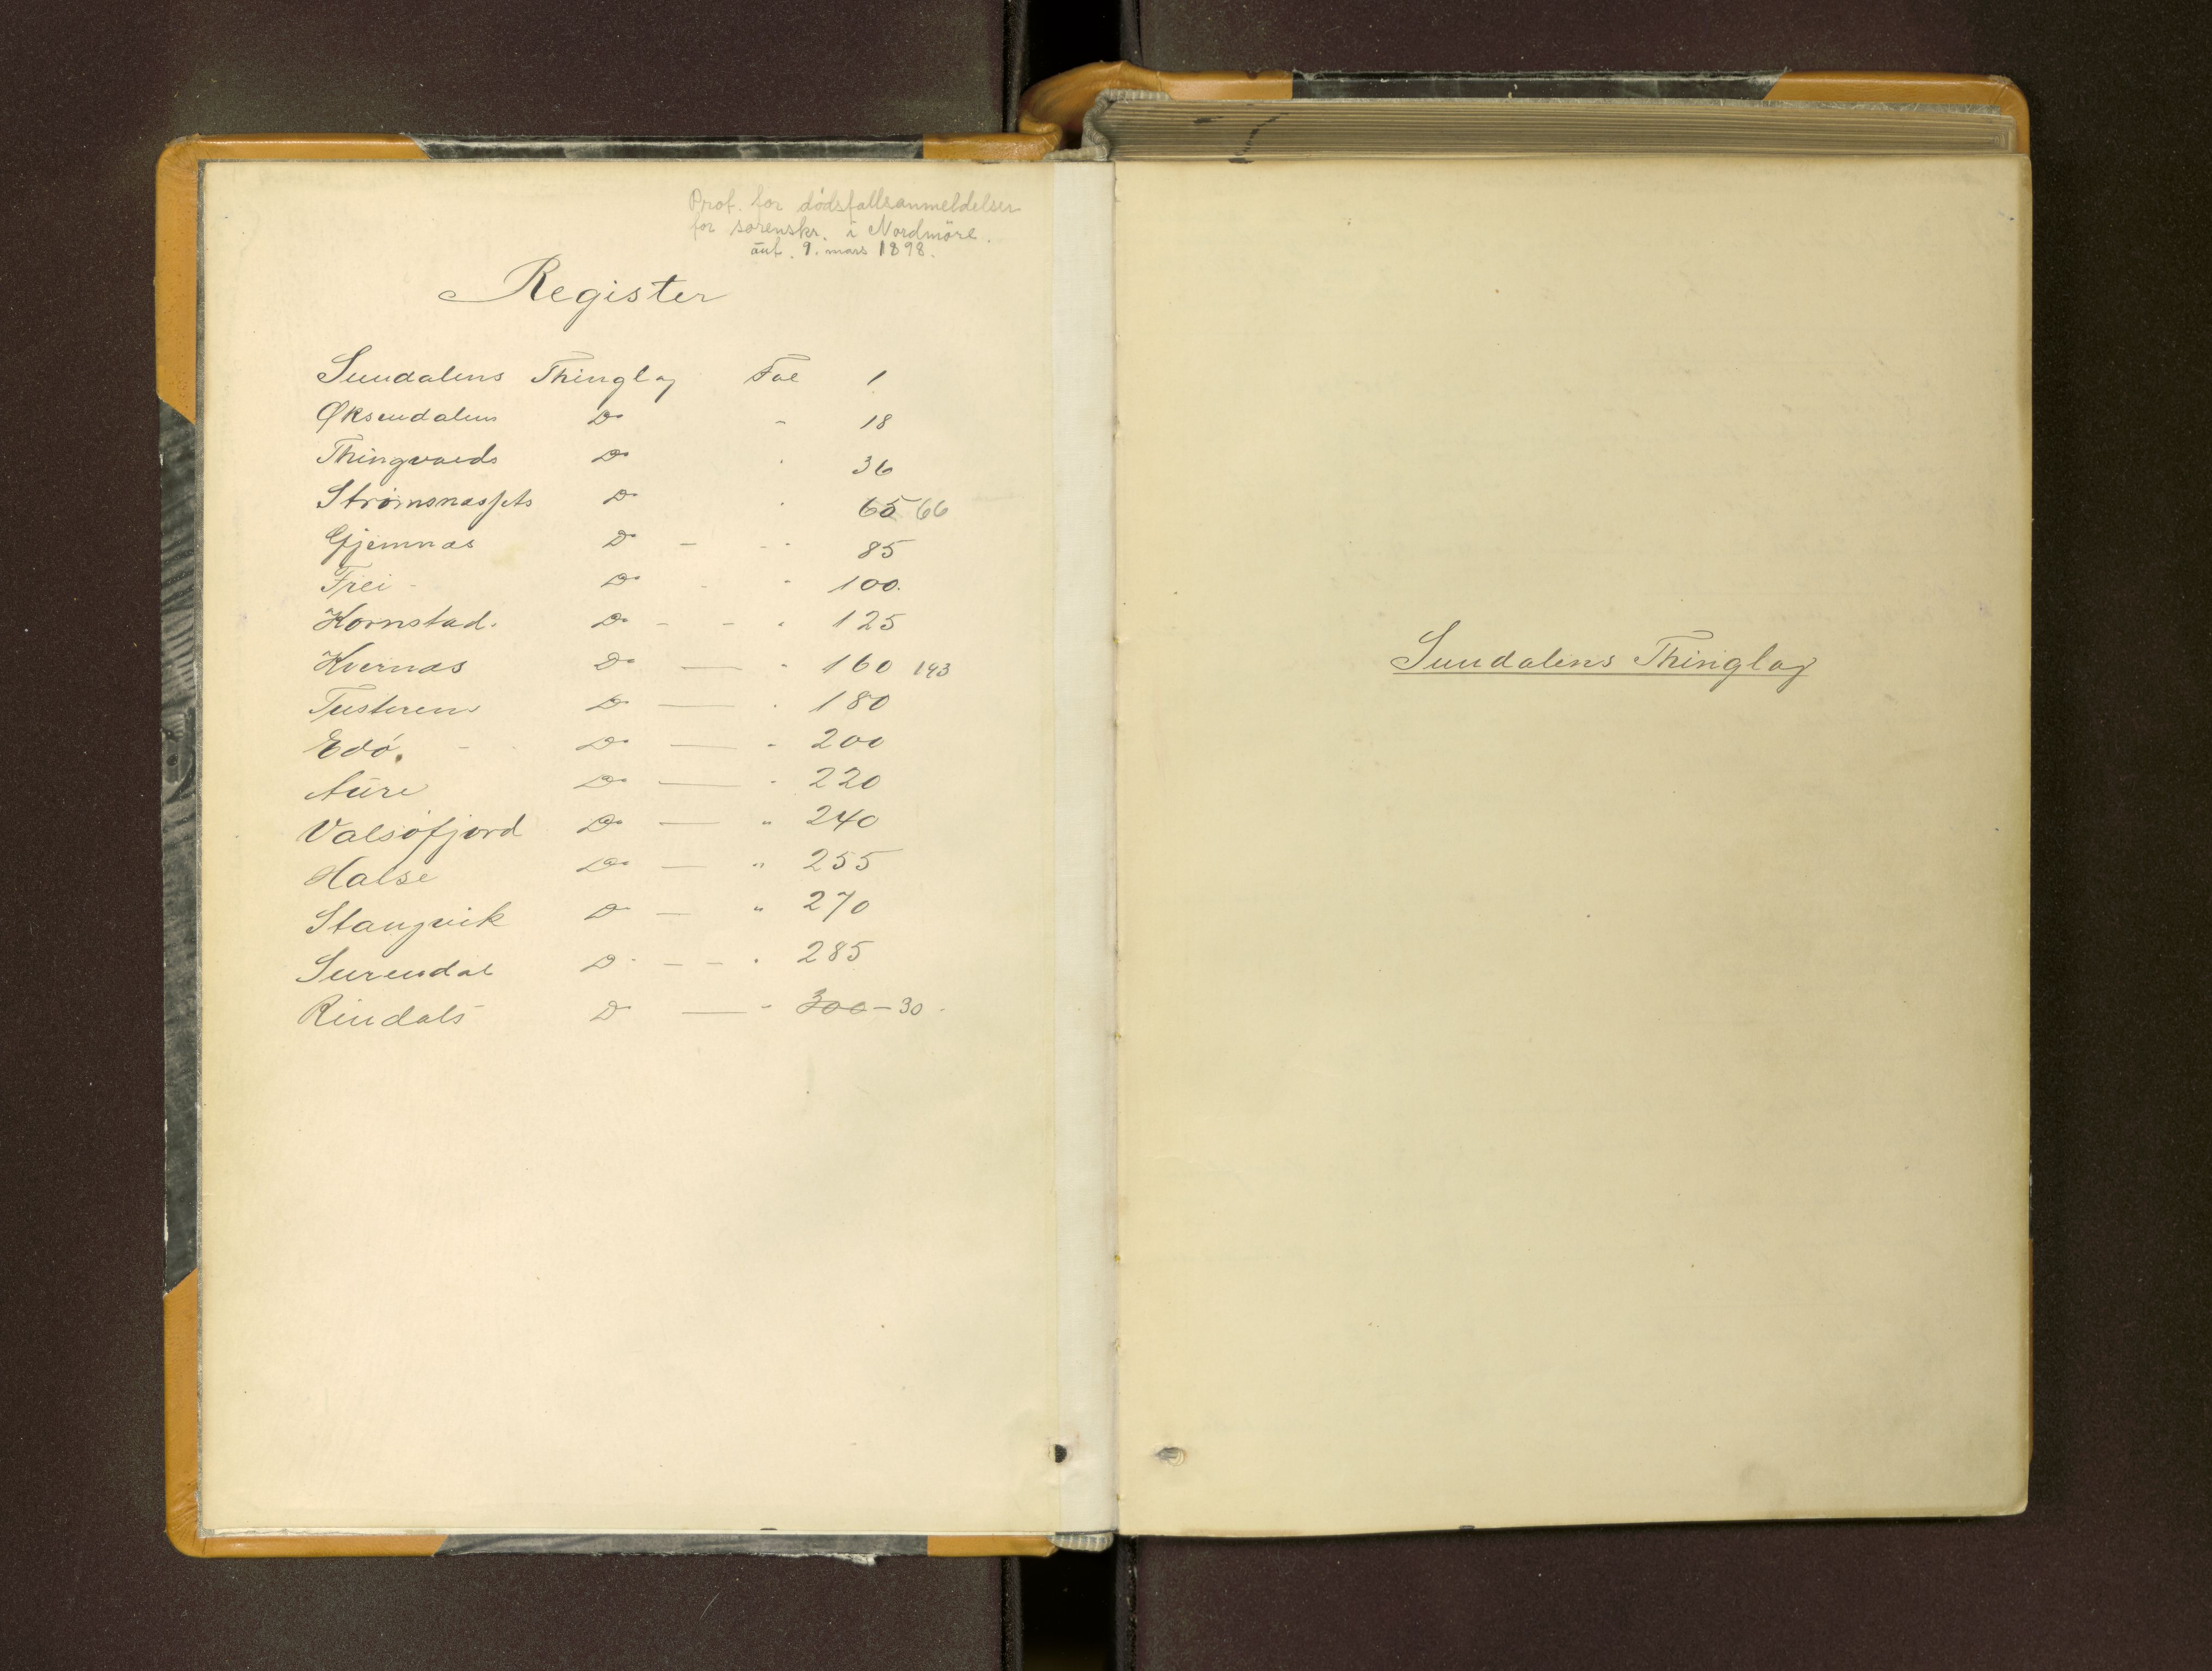 Prot. for dødsfallsanmeldelser
for sorenskr. i Nordmöre.
aut. 9. mars 1898.
Register
Sundalens Thinglag Fol 1
Øksendalens Do - 18
Thingvolds Do " 36
Strømsnæssets Do " 65 66
Gjemnæs Do - - " 85
Frei - Do - " 100.
Kornstad. Do - - " 125
Kvernæs Do — " 160 193
Tusteren Do — " 180
Edø. - Do — " 200
Aure Do — " 220
Valsøfjord Do — " 240
Halse Do — " 255
Stangvik Do — " 270
Surendal Do - - " 285
Rindals Do — " 300 - 30
Sundalens Thinglag